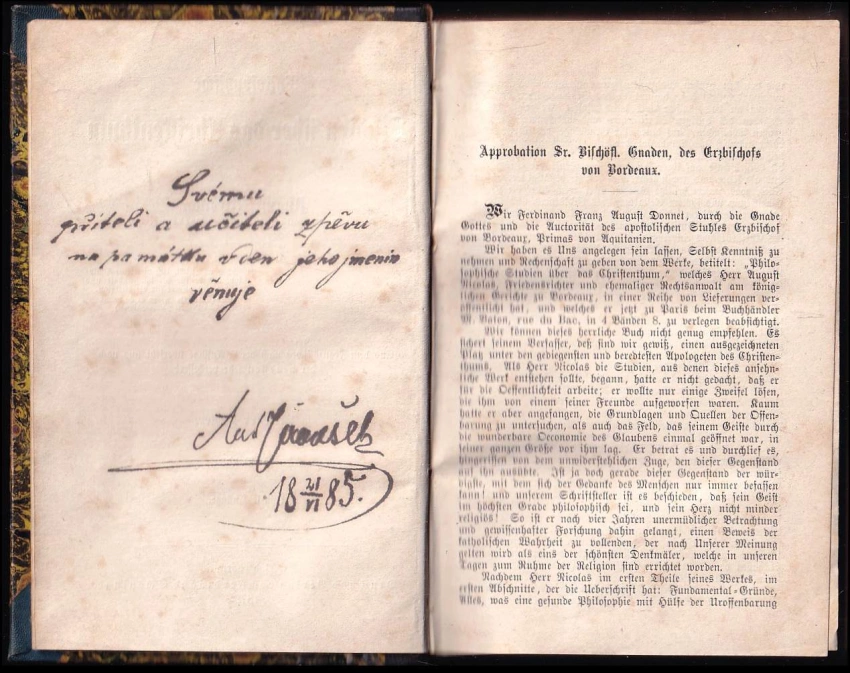 Svému
příteli a učiteli zpěvu
na památku v den jeho jmenin
věnuje
Ant
18 21/VI 85.
Approbation Sr. Bischöfl. Gnaden, des Erzbischofs
von Bordeaux.
Wir Ferdinand Franz August Donnet, durch die Gnade
Gottes und die Auctorität des apostolischen Stuhles Erzbischof
von Bordeaux, Primas von Aquitanien.
Wir haben es Uns angelegen sein lassen, Selbst Kenntniß zu
nehmen und Rechenschaft zu geben von dem Werke, betitelt: „Philo-
sophische Studien über das Christenthum,“ welches Herr August
Nicolas, Friedensrichter und ehemaliger Rechtsanwalt am könig-
lichen Gerichte zu Bordeaux, in einer Reihe von Lieferungen ver-
öffentlicht hat, und welches er jetzt zu Paris beim Buchhändler
M. Vaton, rue du Bac, in 4 Bänden 8. zu verlegen beabsichtigt.
Wir können dieses herrliche Buch nicht genug empfehlen. Es
sichert seinem Verfasser, deß sind wir gewiß, einen ausgezeichneten
Platz unter den gediegensten und beredtesten Apologeten des Christen-
thums. Als Herr Nicolas die Studien, aus denen dieses ansehn-
liche Werk entstehen sollte, begann, hatte er nicht gedacht, daß er
für die Oeffentlichkeit arbeite; er wollte nur einige Zweifel lösen,
die ihm von einem seiner Freunde aufgeworfen waren. Kaum
hatte er aber angefangen, die Grundlagen und Quellen der Offen-
barung zu untersuchen, als auch das Feld, das seinem Geiste durch
die wunderbare Oeconomie des Glaubens einmal geöffnet war, in
seiner ganzen Größe vor ihm lag. Er betrat es und durchlief es,
hingerissen von dem unwiderstehlichen Zuge, den dieser Gegenstand
auf ihn ausübte. Ist ja doch gerade dieser Gegenstand der wür-
digste, mit dem sich der Gedanke des Menschen nur immer befassen
kann! und unserem Schriftsteller ist es beschieden, daß sein Geist
im höchsten Grade philosophisch sei, und sein Herz nicht minder
religiös! So ist er nach vier Jahren unermüdlicher Betrachtung
und gewissenhafter Forschung dahin gelangt, einen Beweis der
katholischen Wahrheit zu vollenden, der nach Unserer Meinung
gelten wird als eins der schönsten Denkmäler, welche in unseren
Tagen zum Ruhme der Religion sind errichtet worden.
Nachdem Herr Nicolas im ersten Theile seines Werkes, im
ersten Abschnitte, der die Ueberschrift hat: Fundamental-Gründe,
Alles, was eine gesunde Philosophie mit Hülfe der Uroffenbarung